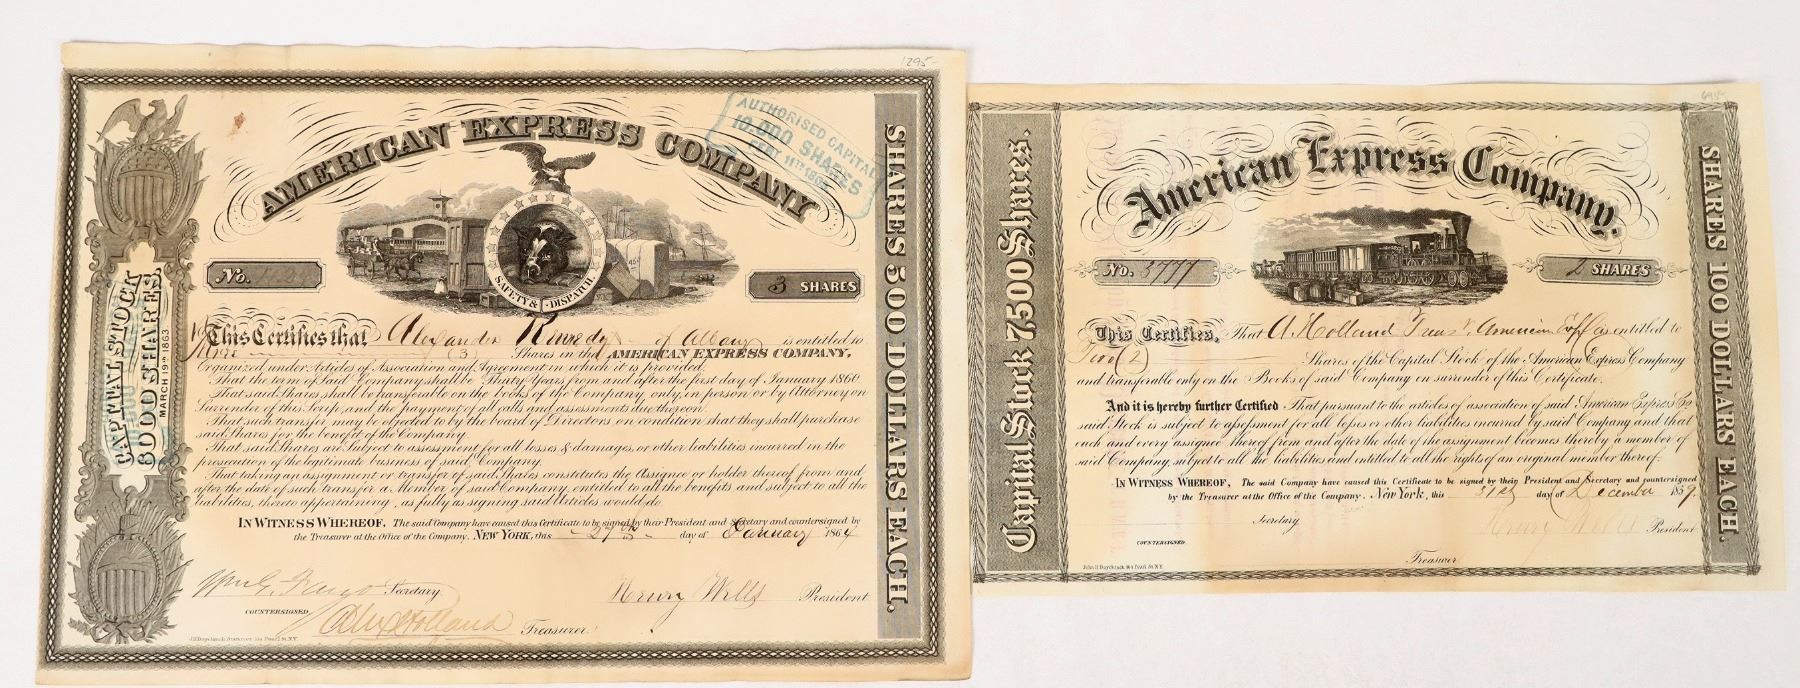 1295-
AMERICAN EXPRESS COMPANY
AUTHORISED CAPITAL
10.000 SHARES
SAFETY & DISPATCH
No.
3 SHARES
CAPITAL STOCK
8000 SHARES.
MARCH 19TH 1863
SHARES 500 DOLLARS EACH.
This Certifies that Alexander Kennedy of Albany is entitled to
(3) Shares in the AMERICAN EXPRESS COMPANY,
Organized under Articles of Association and Agreement in which it is provided.
That the term of Said Company shall be Thirty Years from and after the first day of January 1860.
That said Shares shall be transferable on the books of the Company only, in person or by Attorney on
Surrender of this Scrip, and the payment of all calls and assessments due thereon.
That such transfer may be objected to by the board of Directors on condition that they shall purchase
said Shares for the benefit of the Company.
That said Shares are Subject to assessment for all losses & damages, or other liabilities incurred in the
prosecution of the legitimate business of said Company.
That taking an assignment or transfer of said Shares constitutes the Assignee or holder thereof from and
after the date of such transfer a Member of said Company, entitled to all the benefits and subject to all the
liabilities, thereto appertaining, as fully as signing said Articles would do.
IN WITNESS WHEREOF, The said Company have caused this Certificate to be signed by their President and Secretary and countersigned by
the Treasurer at the Office of the Company. NEW YORK, this 27th day of January 1864
Wm G. Fargo Secretary Henry Wells President
COUNTERSIGNED,
Alex Holland Treasurer
695-
American Express Company.
Capital Stock 7500 Shares.
No. 3777
2 SHARES
SHARES 100 DOLLARS EACH.
This Certifies, That A. Holland Treasr. American Exp Co entitled to
Two (2) Shares of the Capital Stock of the American Express Company
and transferable only on the Books of said Company on surrender of this Certificate.
And it is hereby further Certified That pursuant to the articles of association of said American Express Co
said Stock is subject to assessment for all losses or other liabilities incurred by said Company and that
each and every assignee thereof from and after the date of the assignment becomes thereby a member of
said Company, subject to all the liabilities and entitled to all the rights of an original member thereof.
IN WITNESS WHEREOF, The said Company have caused this Certificate to be signed by their President and Secretary and countersigned
by the Treasurer at the Office of the Company. New York, this 31st day of December 1859.
Secretary. Henry Wells President
COUNTERSIGNED.
Treasurer